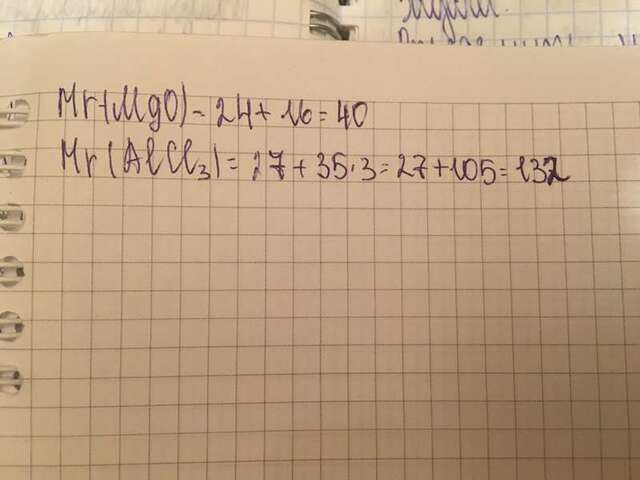 Mr(MgO) = 24 + 16 = 40
Mr(AlCl₃) = 27 + 35·3 = 27 + 105 = 132